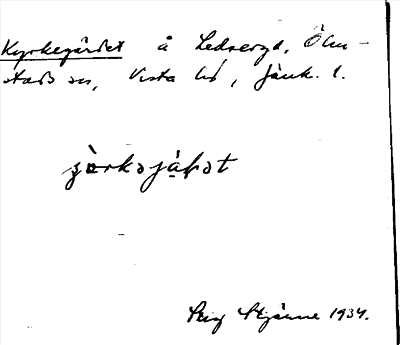 Kyrkegärdet å Ledsergd, Ölm-
stads sn, Vista hd, Jönk. l.
Stig Stjärne 1934.